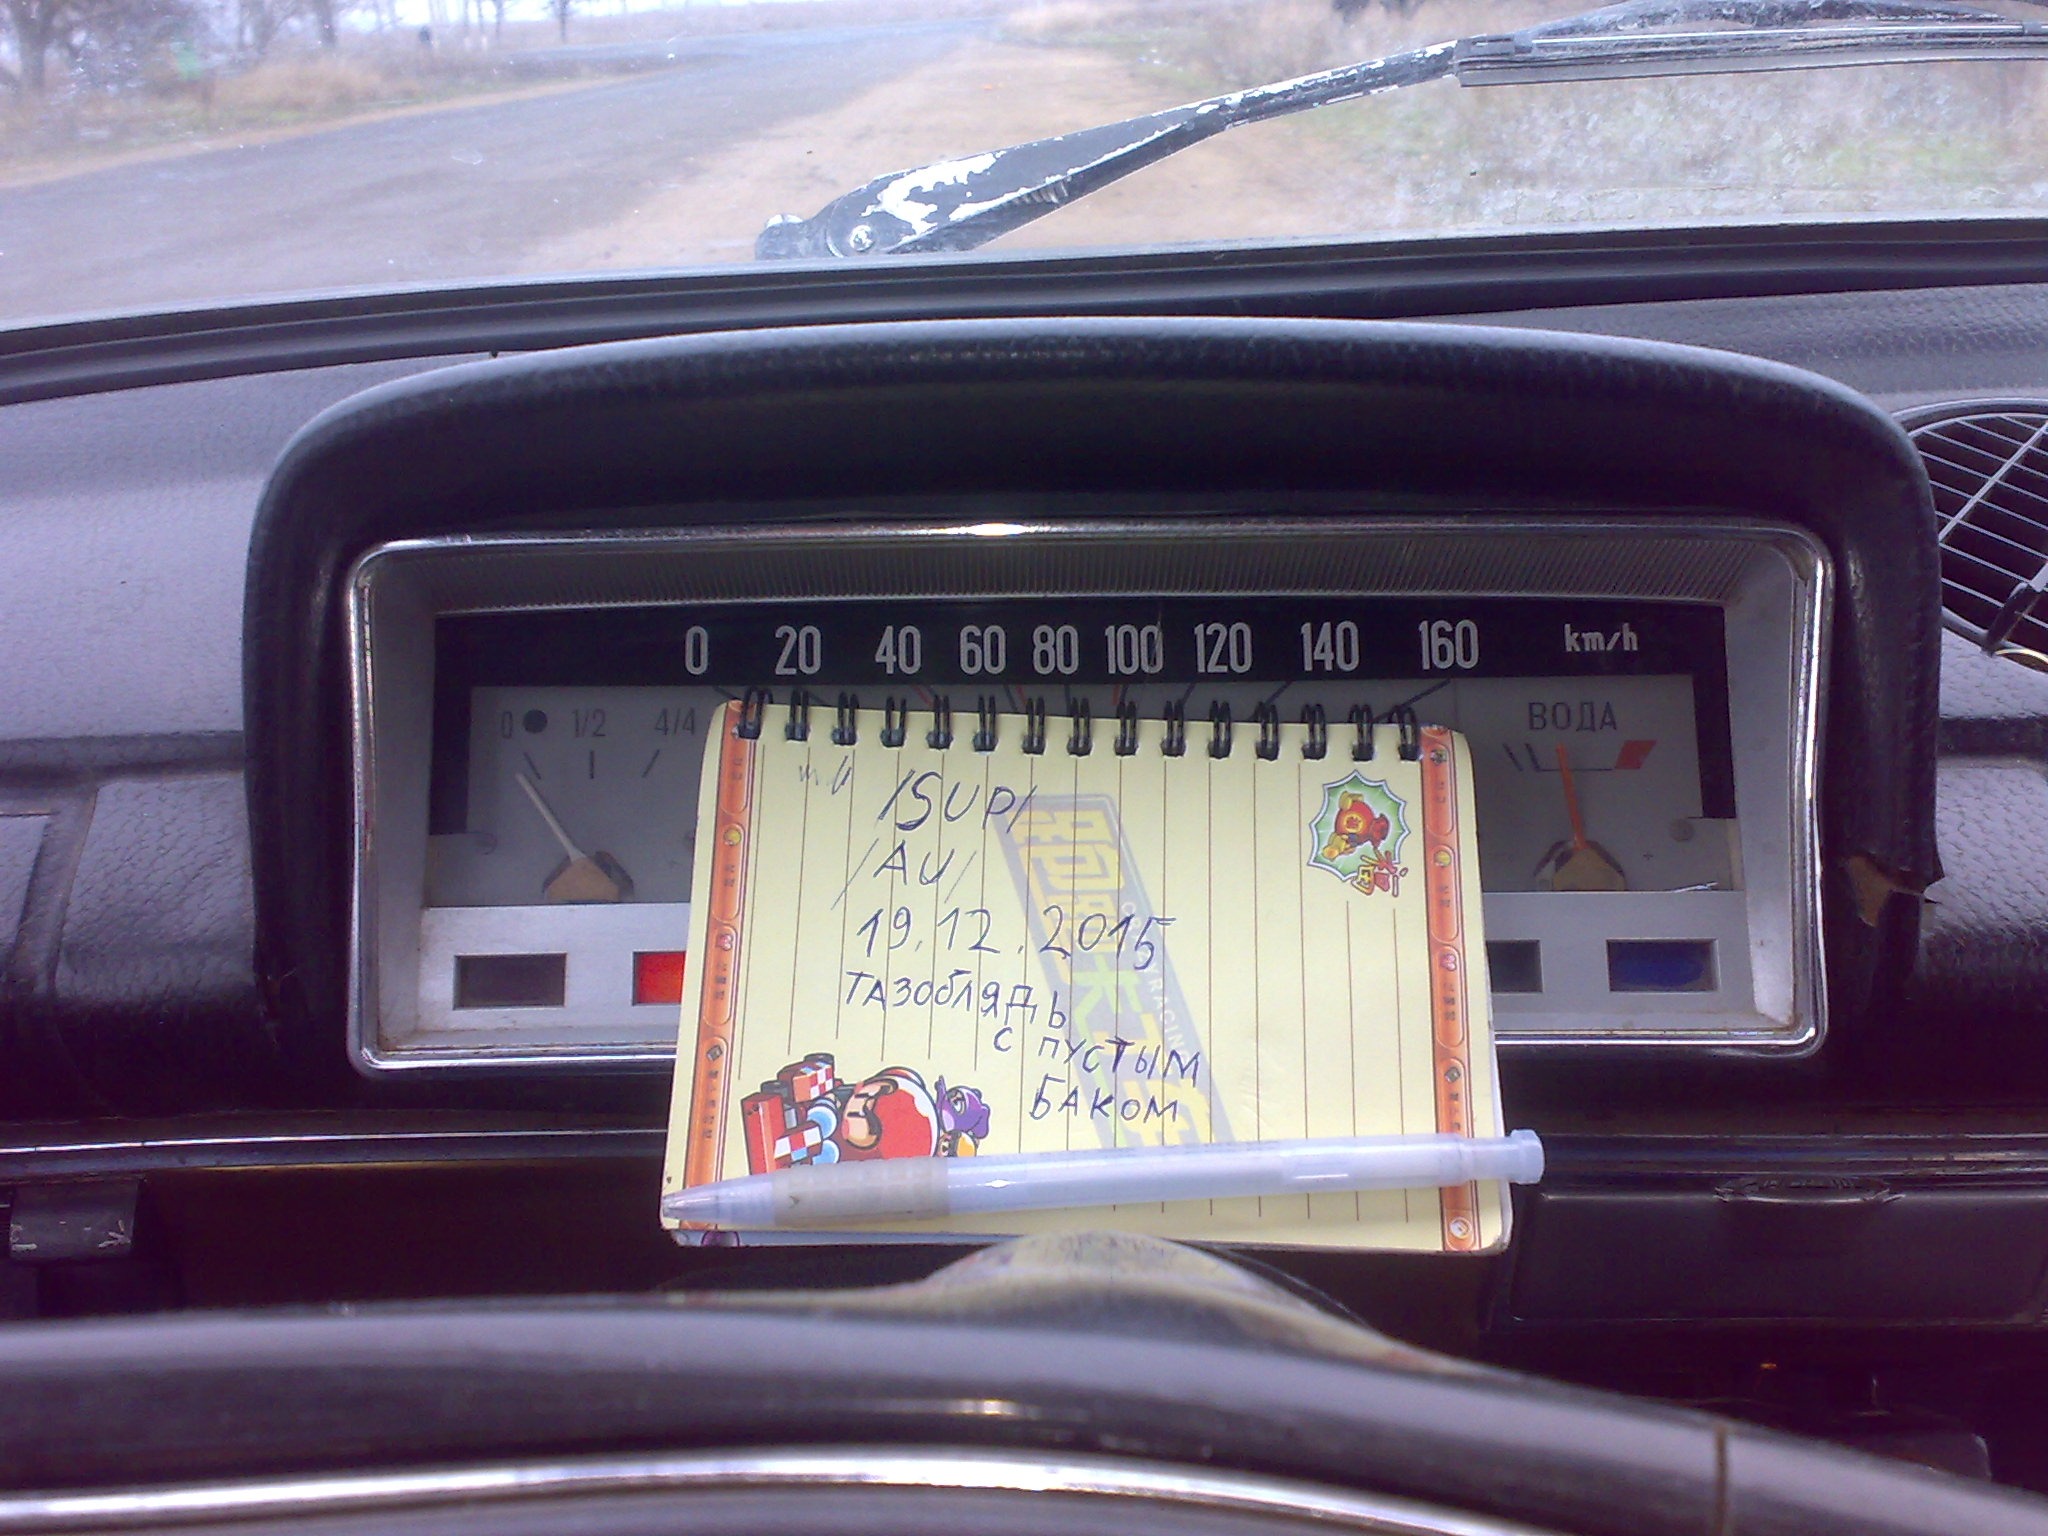 0 20 40 60 80 100 120 140 160 km/h
0 1/2 4/4
ВОДА
/SUP/
/AU/
19.12.2015
ТАЗОБЛЯДЬ
С ПУСТЫМ
БАКОМ